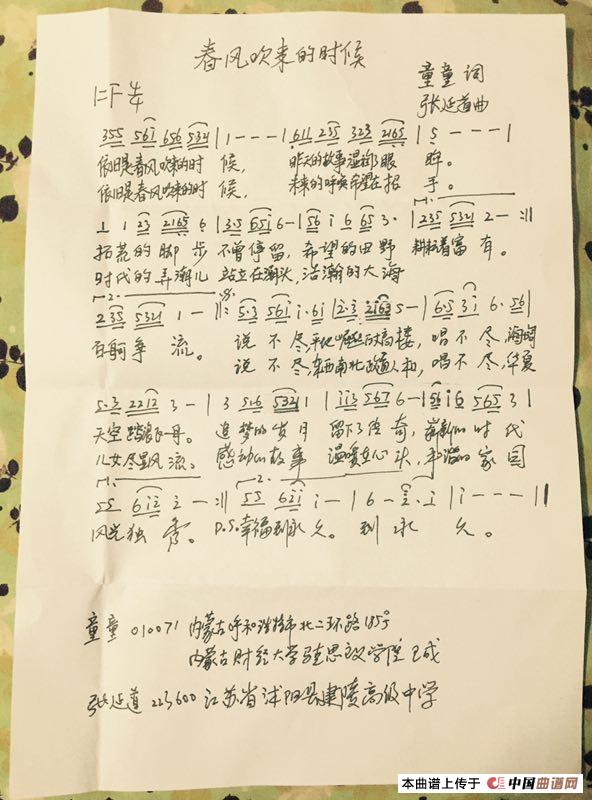 春风吹来的时候
童童 词
张延道曲
355 561 656 5321 | 1 - - - | 611 235 323 2165 | 5 - - - |
依旧是春风吹来的时 候, 昨天的故事湿润眼 眸。
依旧是春风吹来的时 候, 未来的呼唤希望在招 手。
1 1 23 2165 6 | 3·5 651 6 - | 56 i 6 65 3· | 235 5321 2 - :||
拓荒的脚 步 不曾停留,希望的田野 耕耘着富 有。
时代的弄潮儿 站立在潮头,浩瀚的大海
235 5321 1 - ||
百舸争 流。 说 不 尽,平地崛起的高楼, 唱 不 尽,海阔
说 不 尽,东西南北政通人和, 唱 不 尽,华夏
5·3 2212 3 - | 3 51·6 5321 | ii3 567 6 - | 56i6 565 3 |
天空踏浪飞舟。 追梦的岁月 留下了传奇,崭新的时代
儿女尽显风流。 感动的故事 温暖在心头,和谐的家园
55 6i2 i - :|| 55 62i i - | 6 - 2·i | i - - - ||
风光独 秀。 D.S.幸福到永久。 到 永 久。
童童 010071 内蒙古呼和浩特市北二环路185号
内蒙古财经大学马克思主义学院 王成
张延道 223600 江苏省沭阳县建陵高级中学
本曲谱上传于 中国曲谱网